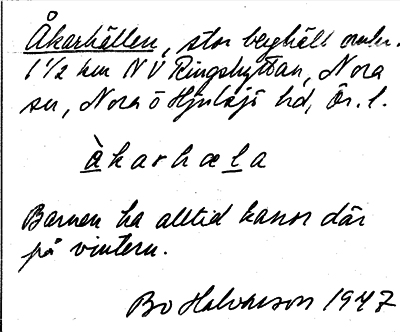 Åkarhällen, stor berghäll omkr.
1 1/2 km NV Ringshyttan, Nora
sn, Nora o Hjulsjö hd, Ör. l.
àkarhæla
Barnen ha alltid kanor där
på vintern.
Bo Halvarson 1947